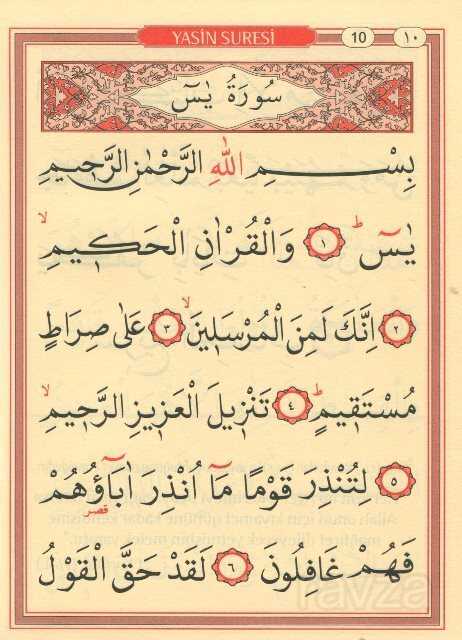 YASİN SURESİ 10 ١٠
سُورَةُ يٰسٓ
بِسْمِ اللّٰهِ الرَّحْمٰنِ الرَّحِيمِ
يٰسٓ ۚ ﴿١﴾ وَالْقُرْاٰنِ الْحَك۪يمِۙ
﴿٢﴾ اِنَّكَ لَمِنَ الْمُرْسَل۪ينَۙ ﴿٣﴾ عَلٰى صِرَاطٍ
مُسْتَق۪يمٍۜ ﴿٤﴾ تَنْز۪يلَ الْعَز۪يزِ الرَّح۪يمِۙ
﴿٥﴾ لِتُنْذِرَ قَوْمًا مَٓا اُنْذِرَ اٰبَٓاؤُ۬هُمْ
قصر
فَهُمْ غَافِلُونَ ﴿٦﴾ لَقَدْ حَقَّ الْقَوْلُ
ravza